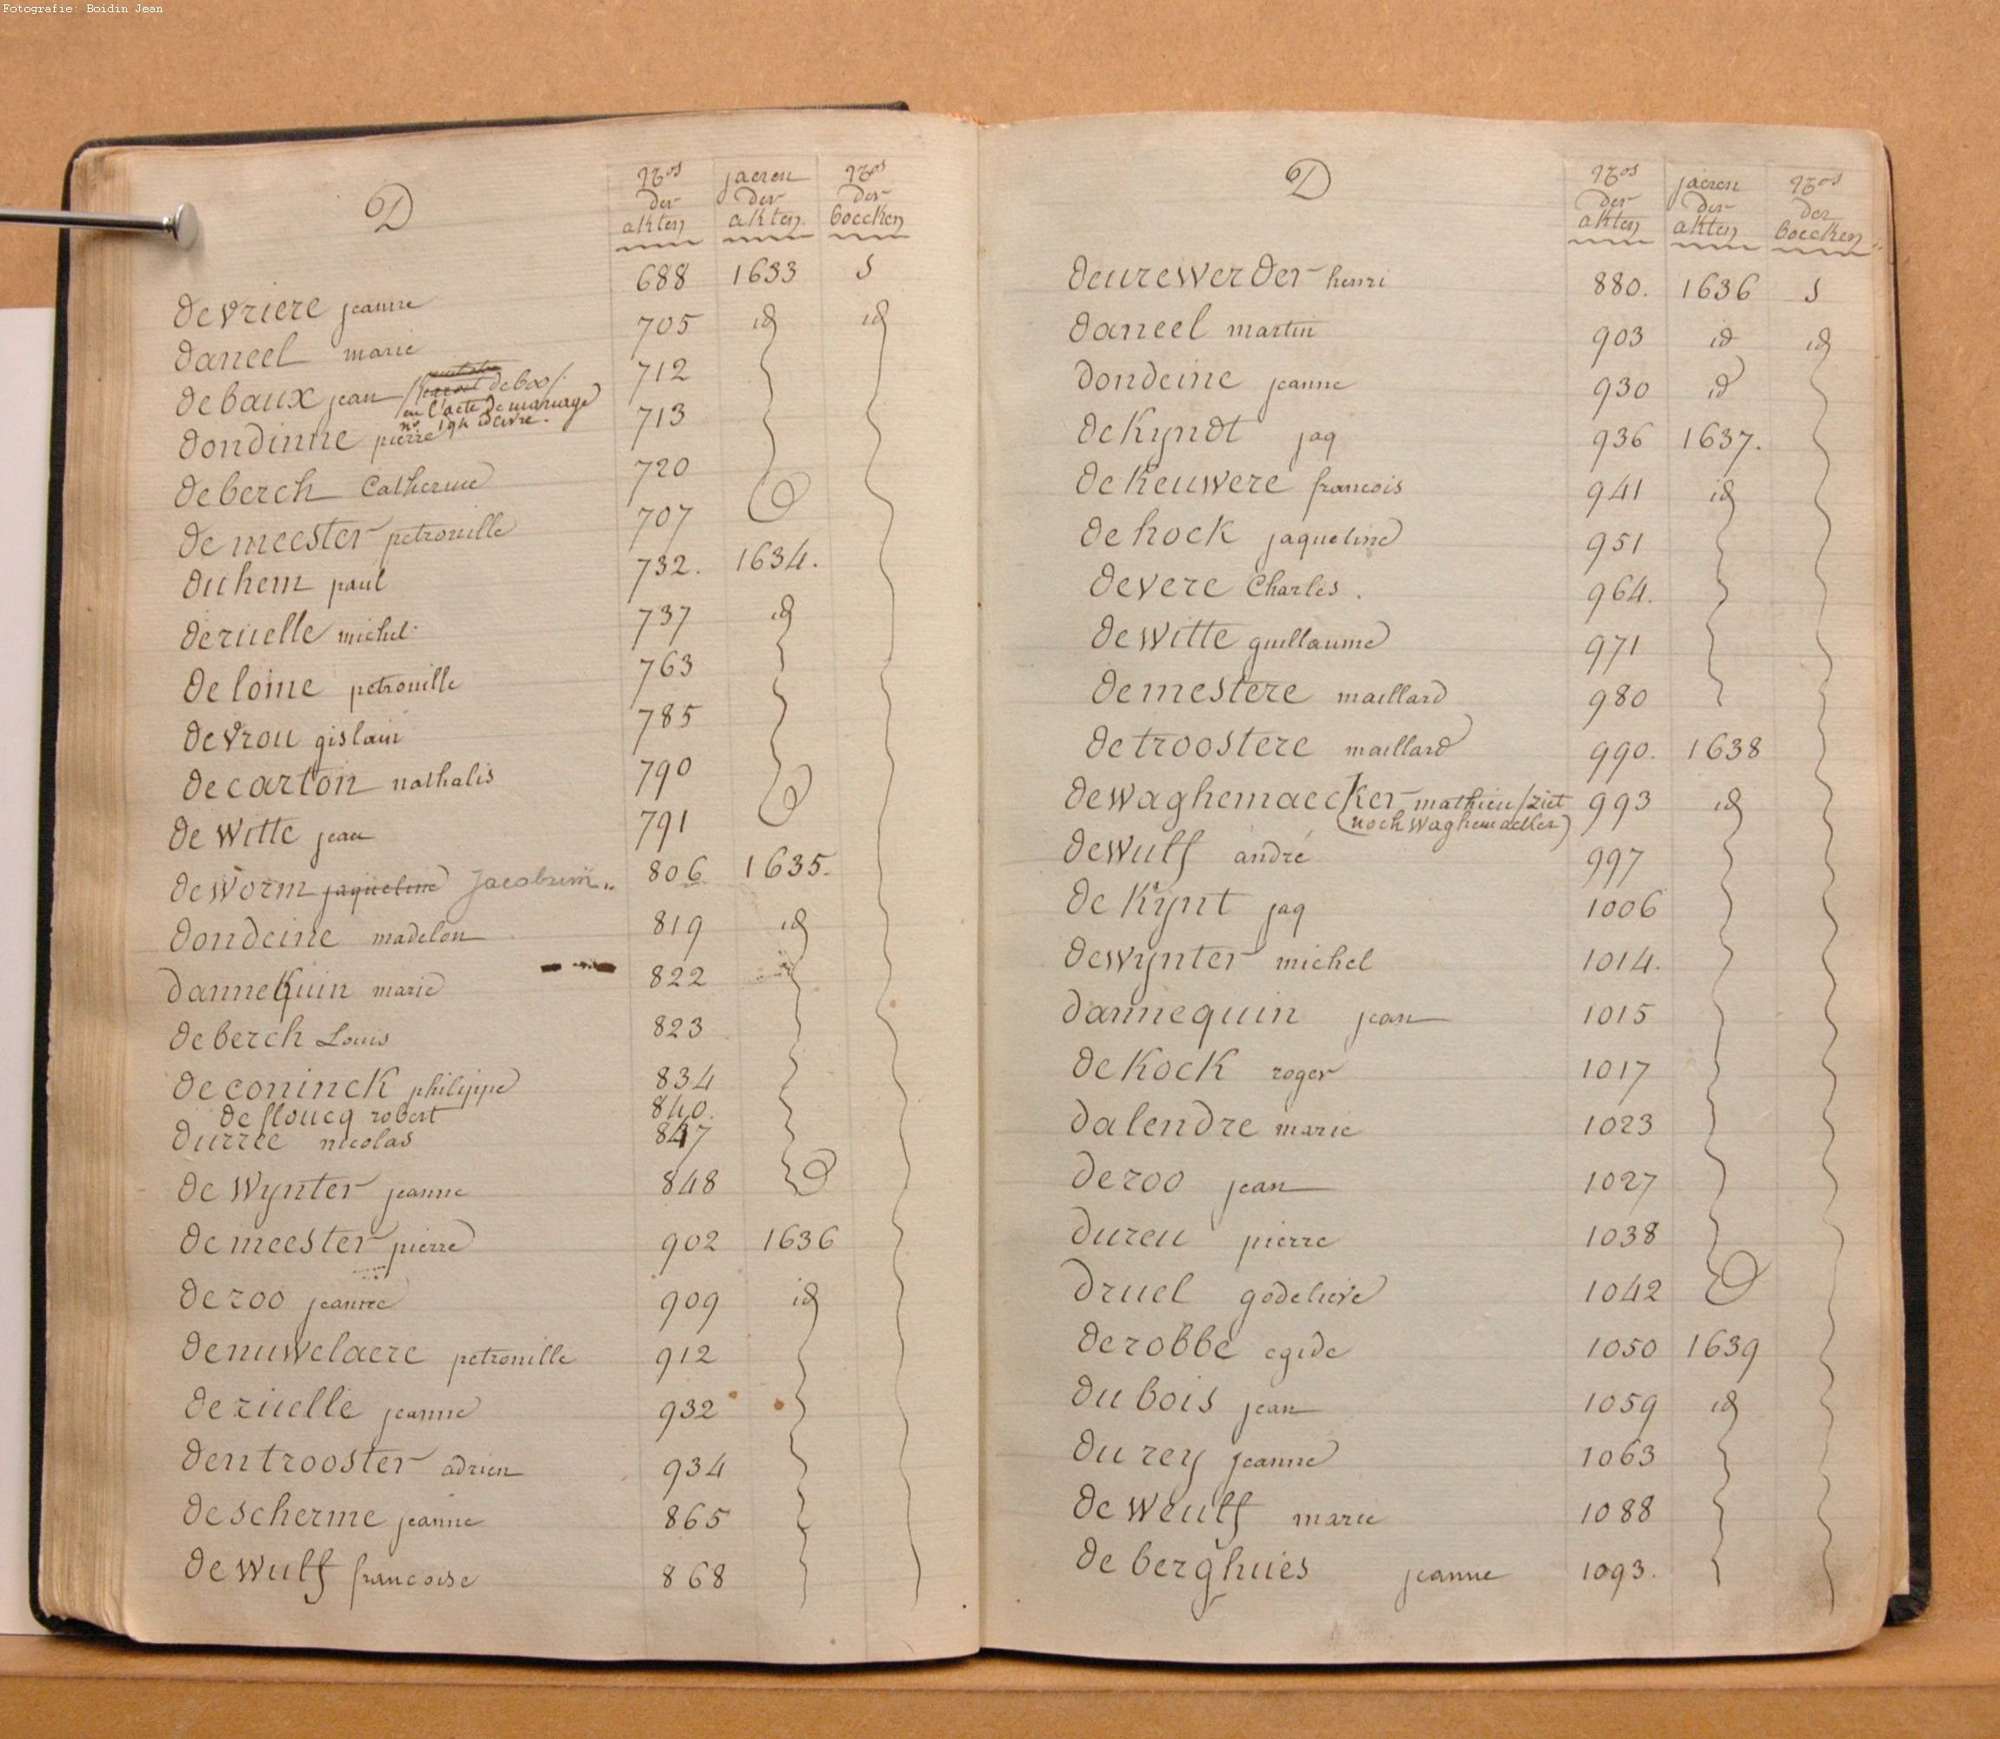 Fotografie: Boidin Jean
D
Nros der akten
jaeren der akten
Nros der boecken
devriere jeanne 688 1633 5
daneel marie 705 id id
debaux jean deboo 712
en l'acte de mariage
no 194
dondinne pierre 713
deberch Catherine 720
demeester petronille 707
duhem paul 732. 1634.
deruelle michel 737 id
deloine petronille 763
devrou gislain 785
decarton nathalis 790
de witte jean 791
deworm jaqueline Jacobum.. 806 1635.
dondeine madelon 819 id
dannequin marie 822
deberch Louis 823
deconinck philippe 834
defloucq robert 840.
durree nicolas 847
de wynter jeanne 848
demeester pierre 902 1636
deroo jeanne 909 id
denuwelaere petronille 912
deruelle jeanne 932
dentrooster adrien 934
descherme jeanne 865
dewulf francoise 868
D
Nros der akten
jaeren der akten
Nros der boecken
deurewerder henri 880. 1636 5
daneel martin 903 id id
dondeine jeanne 930 id
dekyndt jaq 936 1637.
dekeuwere francois 941 id
dehock jaqueline 951
devere Charles. 964.
dewitte guillaume 971
demestere maillard 980
detroostere maillard 990. 1638
dewaghemaecker mathieu /ziet 993 id
(noch waghemaeker)
dewulf andré 997
dekynt jaq 1006
dewynter michel 1014.
dannequin jean 1015
dekock roger 1017
dalendre marie 1023
deroo jean 1027
dureu pierre 1038
druel godelieve 1042
derobbe egide 1050 1639
dubois jean 1059 id
durey jeanne 1063
deweulf marie 1088
deberghues jeanne 1093.